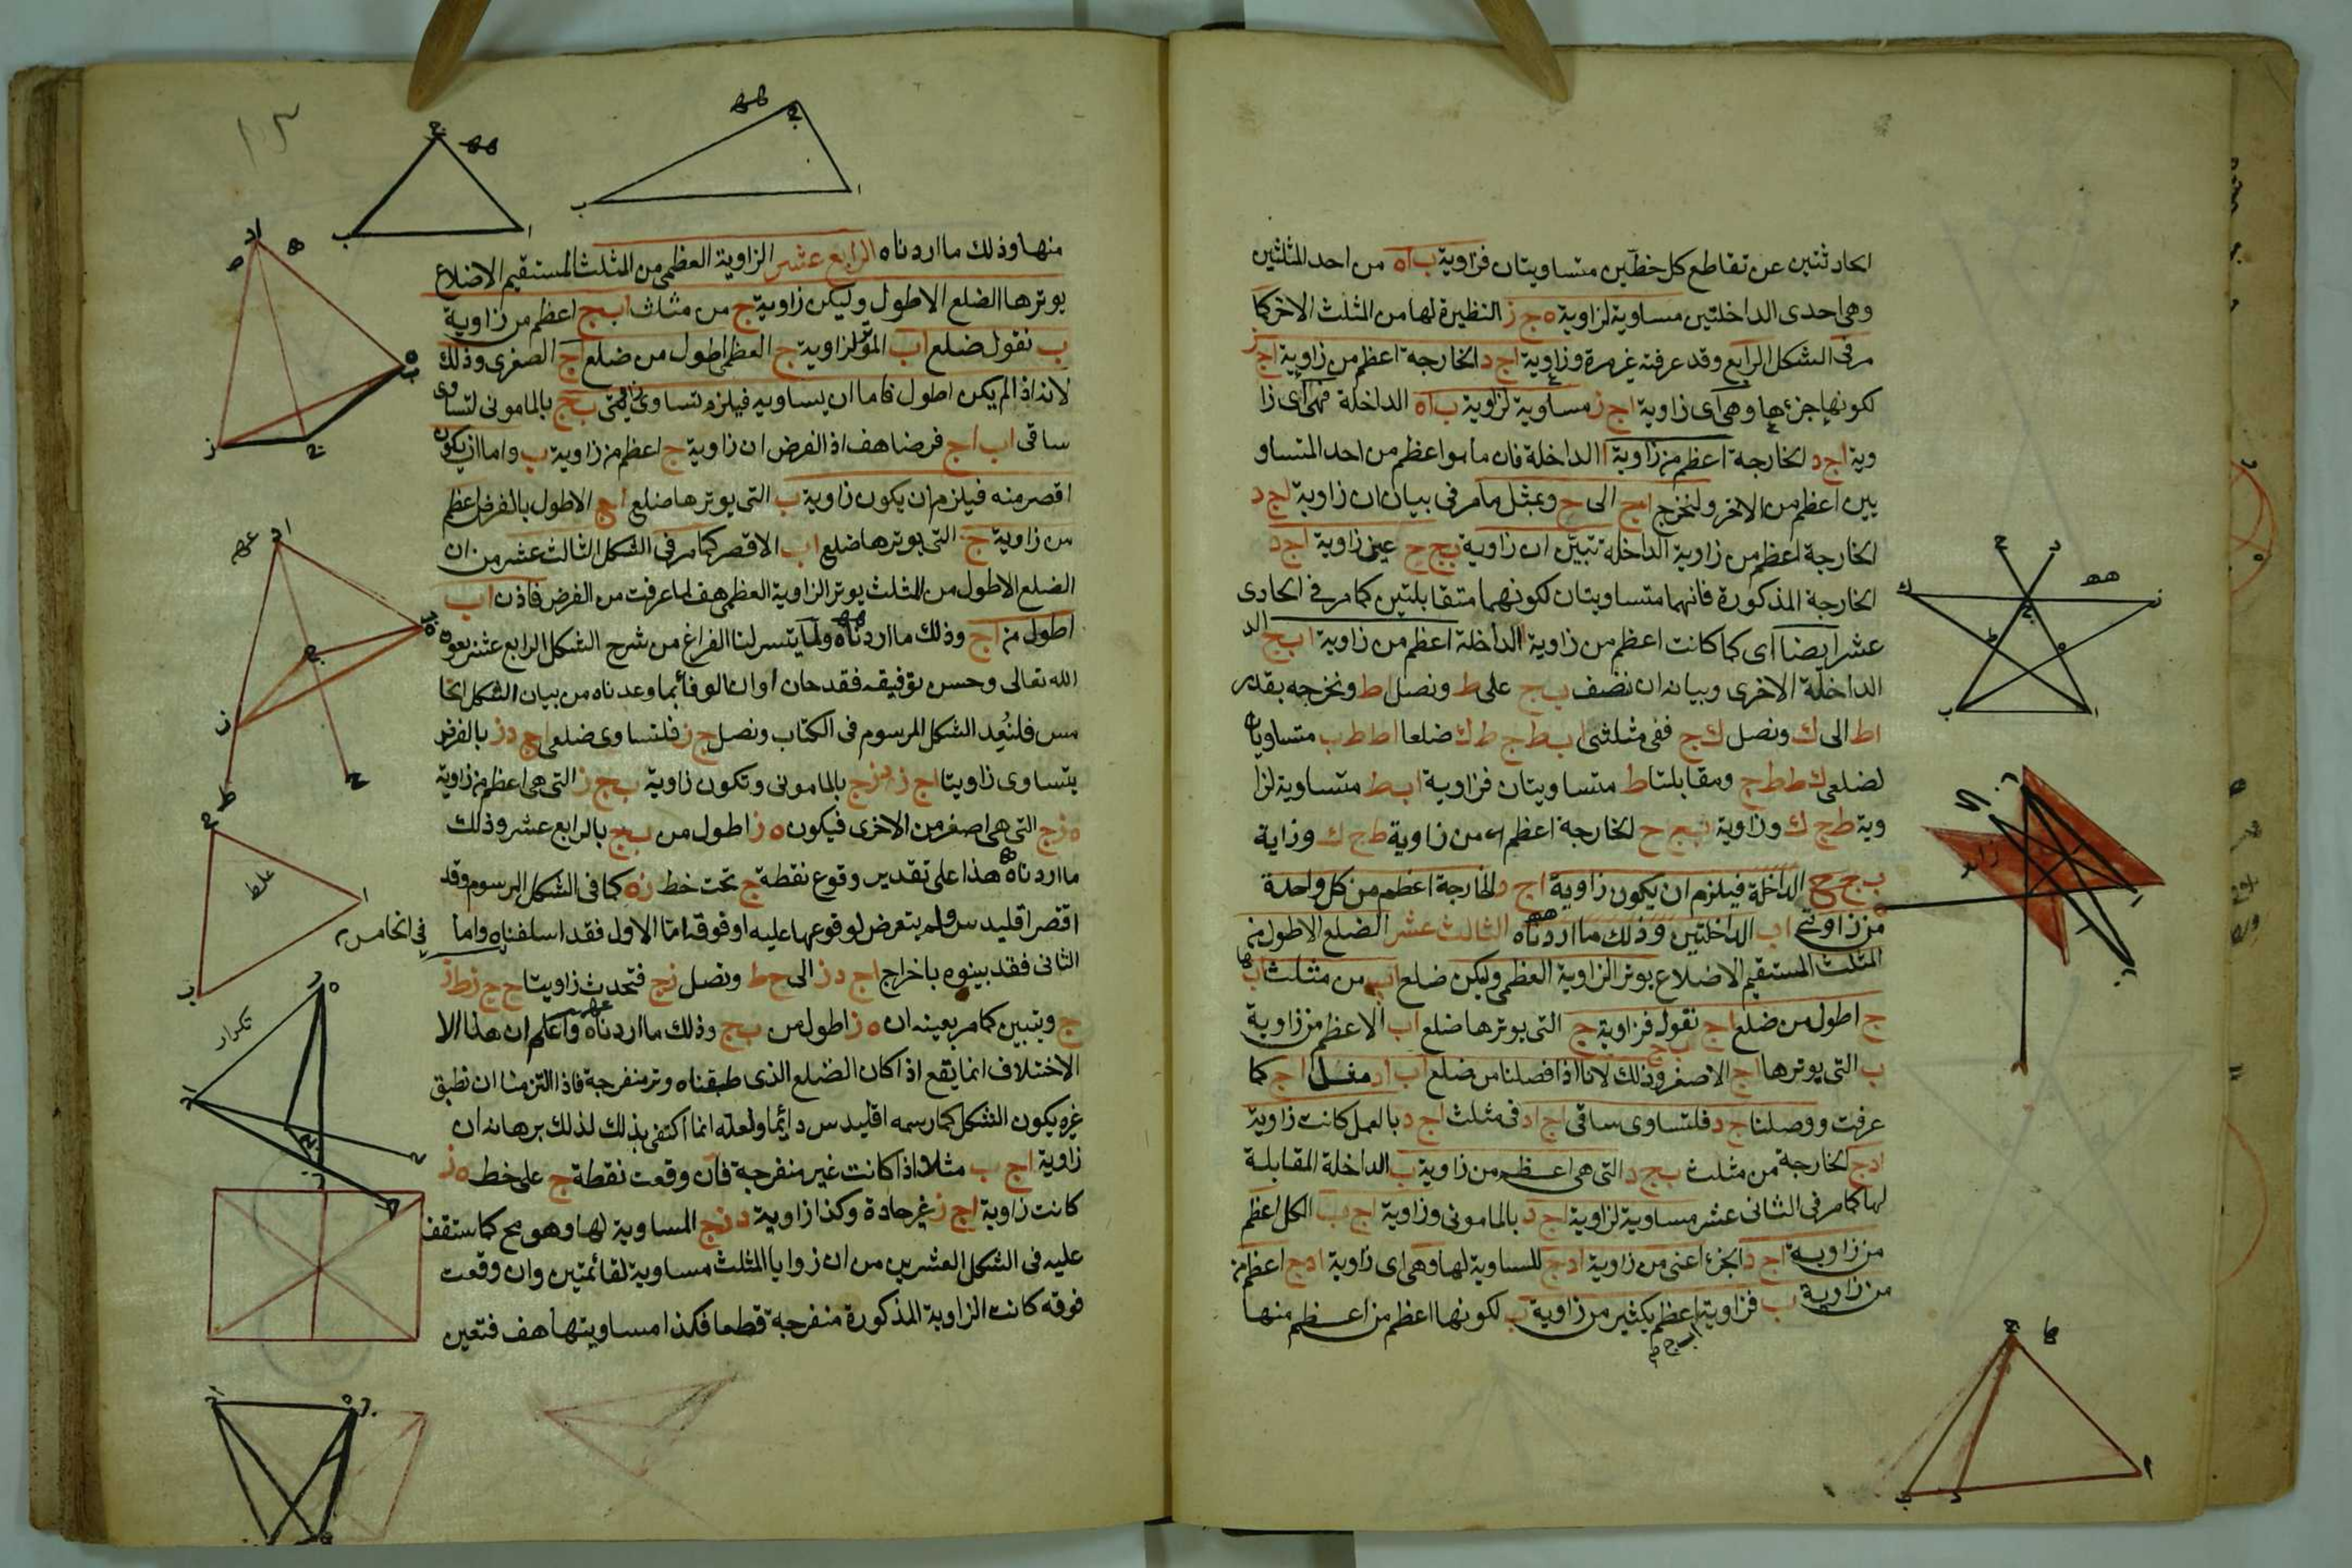 الحادثتين عن تقاطع كل خطين متساويتان فزاوية ب ا ه من احد المثلثين
وهي احدى الداخلتين مساوية لزاوية ه ج ز النظيرة لها من المثلث الاخر كما
مر في الشكل الرابع وقد عرفته غير مرة وزاوية ا ج د الخارجة اعظم من زاوية ا ج ز
لكونها جزءها وهي اي زاوية ا ج ز مساوية لزاوية ب ا ه الداخلة فهي اي زا
وية ا ج د الخارجة اعظم من زاوية ا الداخلة فان ما هو اعظم من احد المتساو
يين اعظم من الاخر ولنخرج ا ج الى ح وبمثل ما مر في بيان ان زاوية ا ج د
الخارجة اعظم من زاوية الداخلة تبين ان زاوية ب ج ح عين زاوية ا ج د
الخارجة المذكورة فانهما متساويتان لكونهما متقابلتين كما مر في الحادي
عشر ايضا اي كما كانت اعظم من زاوية الداخلة اعظم من زاوية ا ب ج
الداخلة الاخرى وبيانه ان ننصف ب ج على ط ونصل ا ط ونخرجه بقدر
ا ط الى ك ونصل ك ج ففي مثلثي ا ب ط ج ط ك ضلعا ا ط ط ب متساويان
لضلعي ك ط ط ج ومقابلتا ط متساويتان فزاوية ا ب ط متساوية لزا
وية ط ج ك وزاوية ب ج ح الخارجة اعظم من زاوية ط ج ك وزاية
ب ج ح الداخلة فيلزم ان يكون زاوية ا ج د الخارجة اعظم من كل واحدة
من زاويتي ا ب الداخلتين وذلك ما اردناه الثالث عشر الضلع الاطول من
المثلث المستقيم الاضلاع يوتر الزاوية العظمى وليكن ضلع ا ب من مثلث ا ب
ج اطول من ضلع ا ج نقول فزاوية ج التي يوترها ضلع ا ب الاعظم من زاوية
ب التي يوترها ا ج الاصغر وذلك لانا اذا فصلنا من ضلع ا ب ا د مثل ا ج كما
عرفت ووصلنا ج د فلتساوي ساقي ا ج ا د في مثلث ا ج د بالعمل كانت زاوية
ا د ج الخارجة من مثلث ب ج د التي هي اعظم من زاوية ب الداخلة المقابلة
لها كما مر في الثاني عشر مساوية لزاوية ا ج د بالماموني وزاوية ا ج ب الكل اعظم
من زاوية ا ج د الجزء اعني من زاوية ا د ج المساوية لها وهي اي زاوية ا د ج اعظم من
من زاوية ب فزاوية اعظم بكثير من زاوية ب لكونها اعظم من اعظم منها
منها وذلك ما اردناه الرابع عشر الزاوية العظمى من المثلث المستقيم الاضلاع
يوترها الضلع الاطول وليكن زاوية ج من مثلث ا ب ج اعظم من زاوية
ب نقول ضلع ا ب الموتر لزاوية ج العظمى اطول من ضلع ا ج الصغرى وذلك
لانه اذا لم يكن اطول فاما ان يساويه فيلزم تساوي زاويتي ب ج بالماموني لتساوي
ساقي ا ب ا ج فرضا هف اذ الفرض ان زاوية ج اعظم من زاوية ب واما ان يكون
اقصر منه فيلزم ان يكون زاوية ب التي يوترها ضلع ا ج الاطول بالفرض اعظم
من زاوية ج التي يوترها ضلع ا ب الاقصر كما مر في الشكل الثالث عشر من ان
الضلع الاطول من المثلث يوتر الزاوية العظمى هف لما عرفت من الفرض فاذن ا ب
اطول من ا ج وذلك ما اردناه ولما يتسر لنا الفراغ من شرح الشكل الرابع عشر بعون
الله تعالى وحسن توفيقه فقد حان اوان الوفا بما وعدناه من بيان الشكل الخا
مس فلنعد الشكل المرسوم في الكتاب ونصل ج ز فلتساوي ضلعي ا ج د ز بالفرض
يتساوى زاويتا ا ج ز د ز ج بالماموني وتكون زاوية ب ج ز التي هي اعظم من زاوية
ه ز ج التي هي اصغر من الاخرى فيكون ه ز اطول من ب ج بالرابع عشر وذلك
ما اردناه هذا على تقدير وقوع نقطة ج تحت خط ز ه كما في الشكل المرسوم وقد
اقتصر اقليدس ولم يتعرض لوقوعها عليه او فوقه اما الاول فقد اسلفناه في الخامس واما
الثاني فقد بينوه باخراج ا ج د ز الى ح ط ونصل ز ج فتحدث زاويتا ح ج ز ط ز
ج ويتبين كما مر بعينه ان ه ز اطول من ب ج وذلك ما اردناه واعلم ان هذا الا
الاختلاف انما يقع اذا كان الضلع الذي طبقناه وتر منفرجة فاذا التزمنا ان نطبق
غيره يكون الشكل كما رسمه اقليدس دائما ولعله انما اكتفى بذلك لذلك برهانه ان
زاوية ا ج ب مثلا اذا كانت غير منفرجة فان وقعت نقطة ج على خط ه ز
كانت زاوية ا ج ز غير حادة وكذا زاوية د ز ج المساوية لها وهو مح كما ستقف
عليه في الشكل العشرين من ان زوايا المثلث مساوية لقائمتين وان وقعت
فوقه كانت الزاوية المذكورة منفرجة قطعا فكذا مساويتها هف فتعين
غلط
تكرار